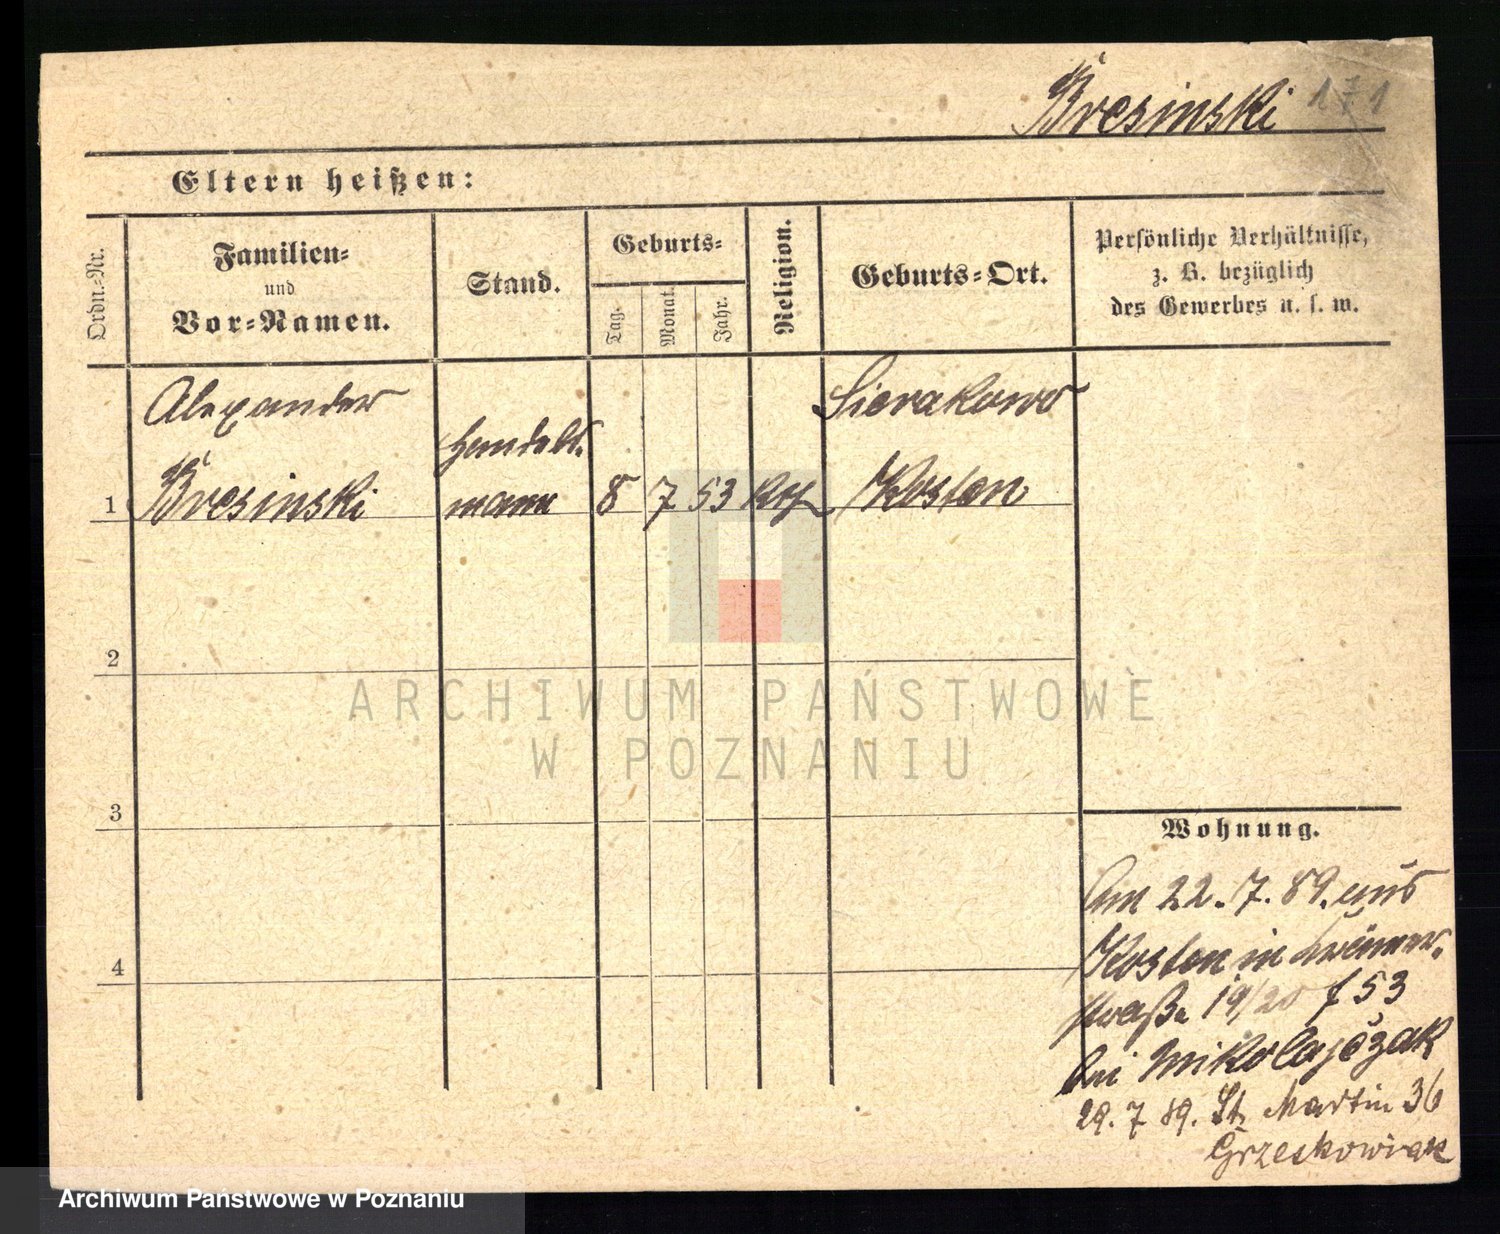 Bresinski 171
Eltern heißen:
Ordn.-Nr.
Familien-
und
Vor-Namen.
Stand.
Geburts-
Tag.
Monat.
Jahr.
Religion.
Geburts-Ort.
Persönliche Verhältnisse,
z. B. bezüglich
des Gewerbes u. s. w.
Alexander
Sierakowo
1 Bresinski
mann 8 7 53 Kth Kosten
2
3
4
Wohnung.
Am 22. 7. 89. aus
Kosten in
straße 19/20 f 53
bei Mikolajczak
29. 7 89. St. Martin 36
Grzeskowiak
ARCHIWUM PAŃSTWOWE
W POZNANIU
Archiwum Państwowe w Poznaniu